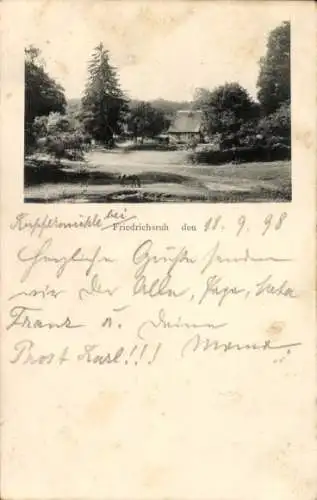 Kupfermühle bei Friedrichsruh den 18. 9. 98
Herzliche Grüße senden
wir Dir Alle, Papa,
Franz u. Deine
Mama.
Prost Karl!!!